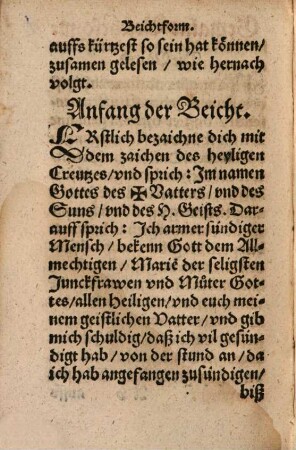 Beichtform.
auffs kürtzest so sein hat können/
zusamen gelesen / wie hernach
volgt.
Anfang der Beicht.
ERstlich bezaichne dich mit
dem zaichen des heyligen
Creutzes/vnd sprich: Im namen
Gottes des ✠ Vatters/ vnd des
Suns/ vnd des H. Geists. Dar-
auff sprich: Ich armer sündiger
Mensch/ bekenn Gott dem All-
mechtigen / Mariē der seligsten
Junckfrawen vnd Můter Got-
tes/allen Heiligen/ vnd euch mei-
nem geistlichen Vatter/ vnd gib
mich schuldig/daß ich vil gesün-
digt hab/ von der stund an/ da
ich hab angefangen zusündigen/
biß